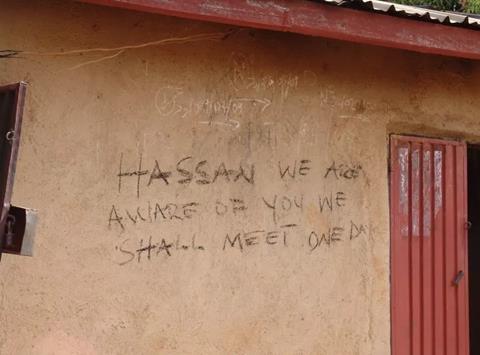 HASSAN WE ARE
AWARE OF YOU WE
SHALL MEET ONE DA